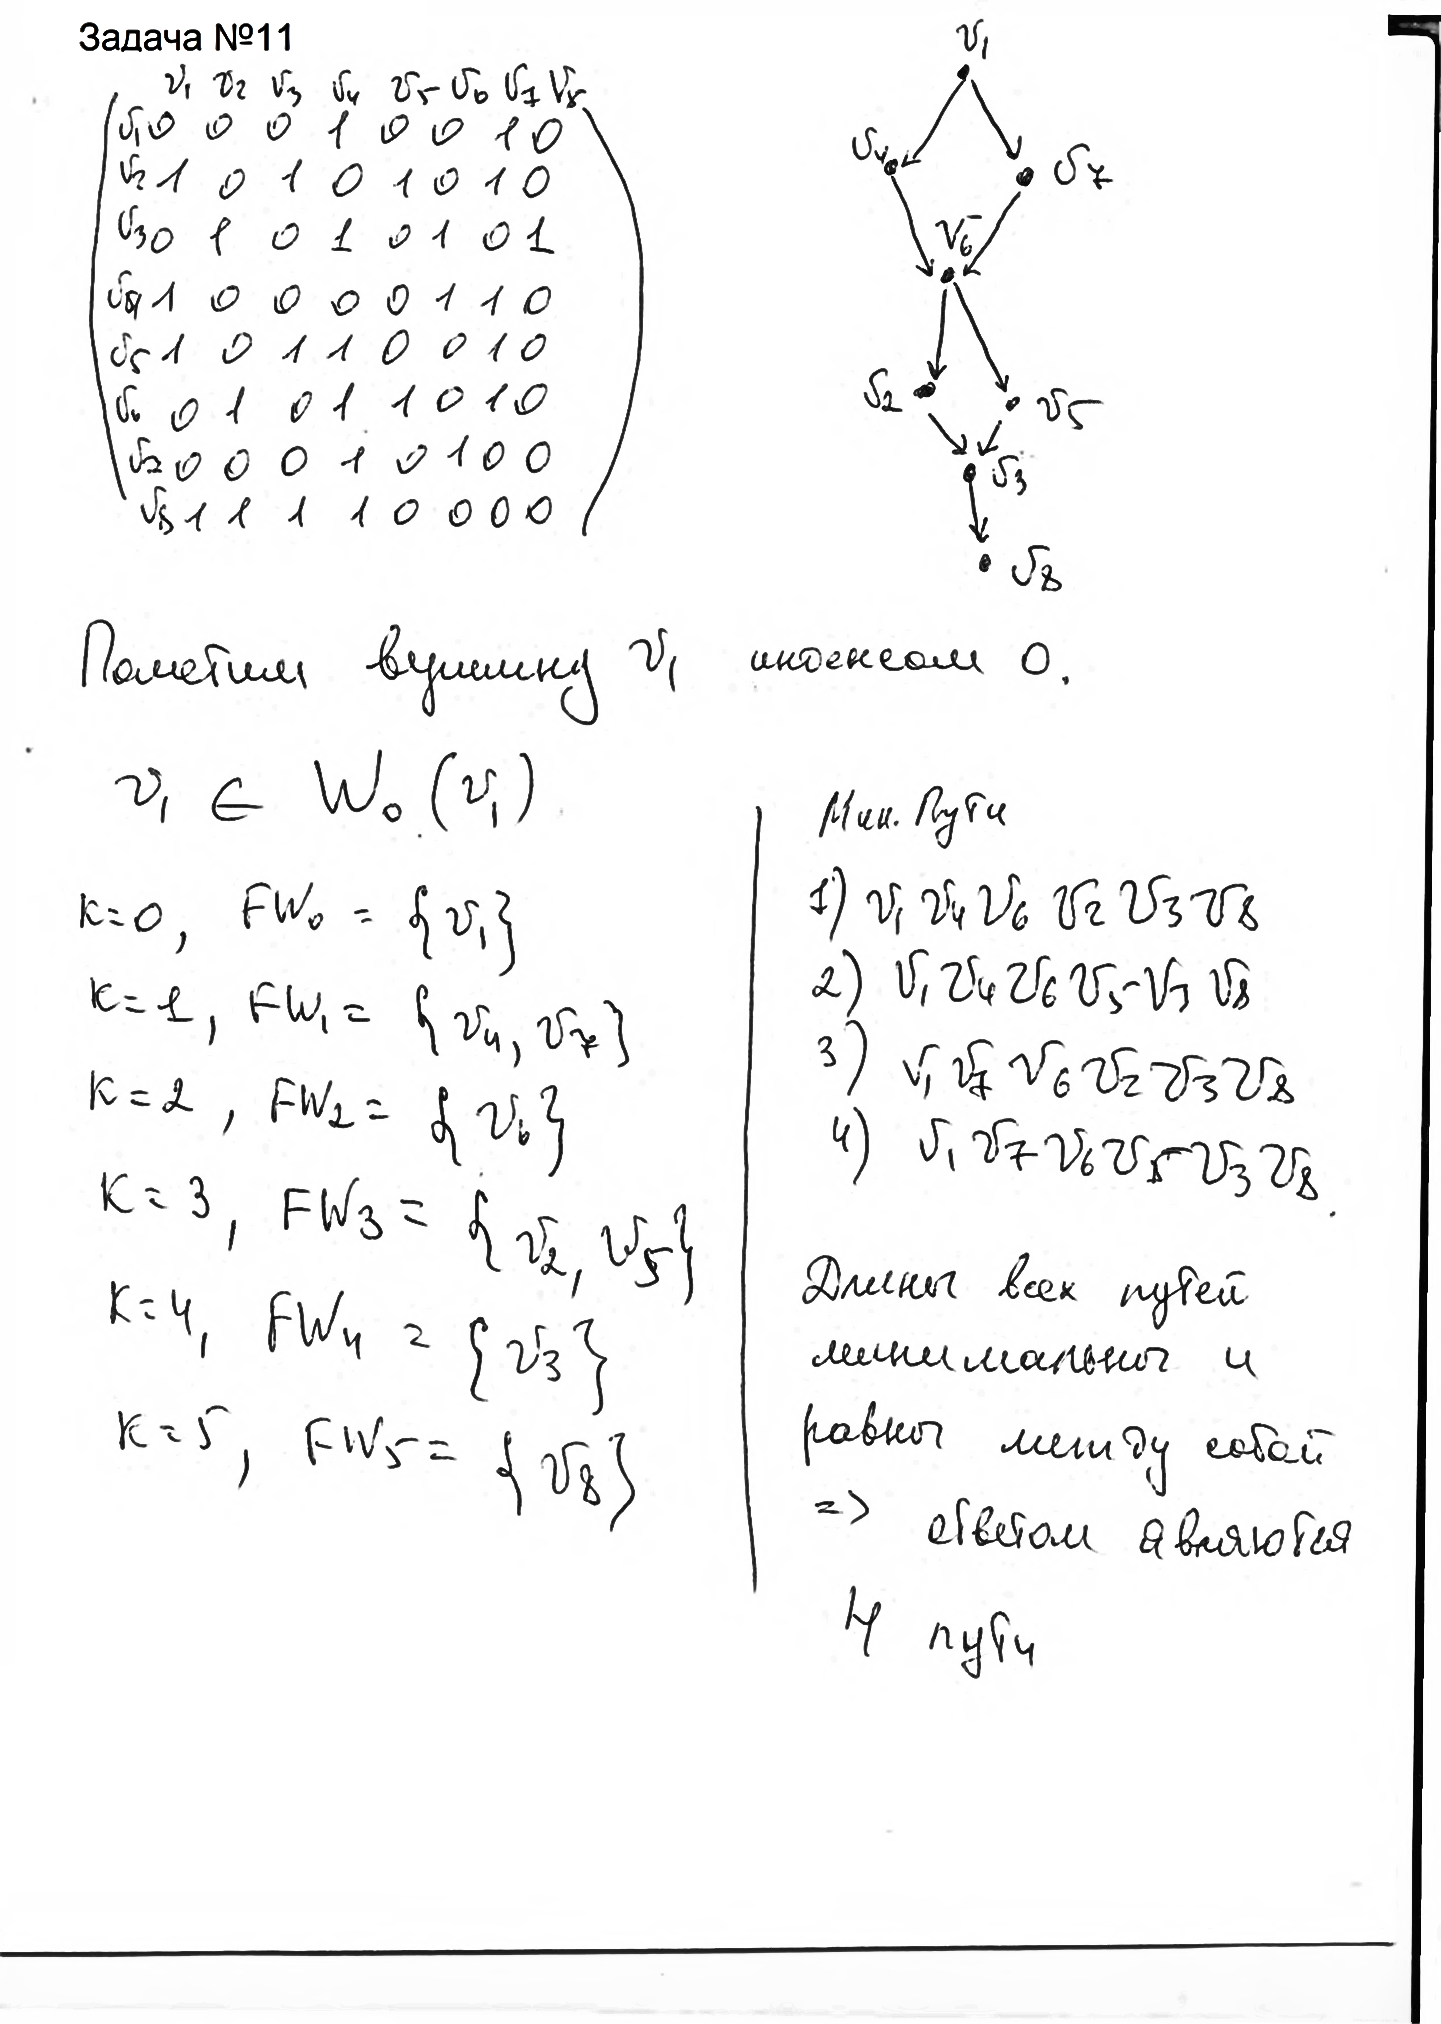 Задача №11
v₁ v₂ v₃ v₄ v₅ v₆ v₇ v₈
v₁ 0 0 0 1 0 0 1 0
v₂ 1 0 1 0 1 0 1 0
v₃ 0 1 0 1 0 1 0 1
v₄ 1 0 0 0 0 1 1 0
v₅ 1 0 1 1 0 0 1 0
v₆ 0 1 0 1 1 0 1 0
v₇ 0 0 0 1 0 1 0 0
v₈ 1 1 1 1 0 0 0 0
v₁
v₄ v₇
v₆
v₂ v₅
v₃
v₈
Пометим вершину v₁ индексом 0.
v₁ ∈ W₀(v₁)
k=0, FW₀ = {v₁}
k=1, FW₁ = {v₄, v₇}
k=2, FW₂ = {v₆}
k=3, FW₃ = {v₂, v₅}
k=4, FW₄ = {v₃}
k=5, FW₅ = {v₈}
Мин. Пути
1) v₁ v₄ v₆ v₂ v₃ v₈
2) v₁ v₄ v₆ v₅ v₃ v₈
3) v₁ v₇ v₆ v₂ v₃ v₈
4) v₁ v₇ v₆ v₅ v₃ v₈.
Длины всех путей
минимальны и
равны между собой
=> ответом являются
4 пути